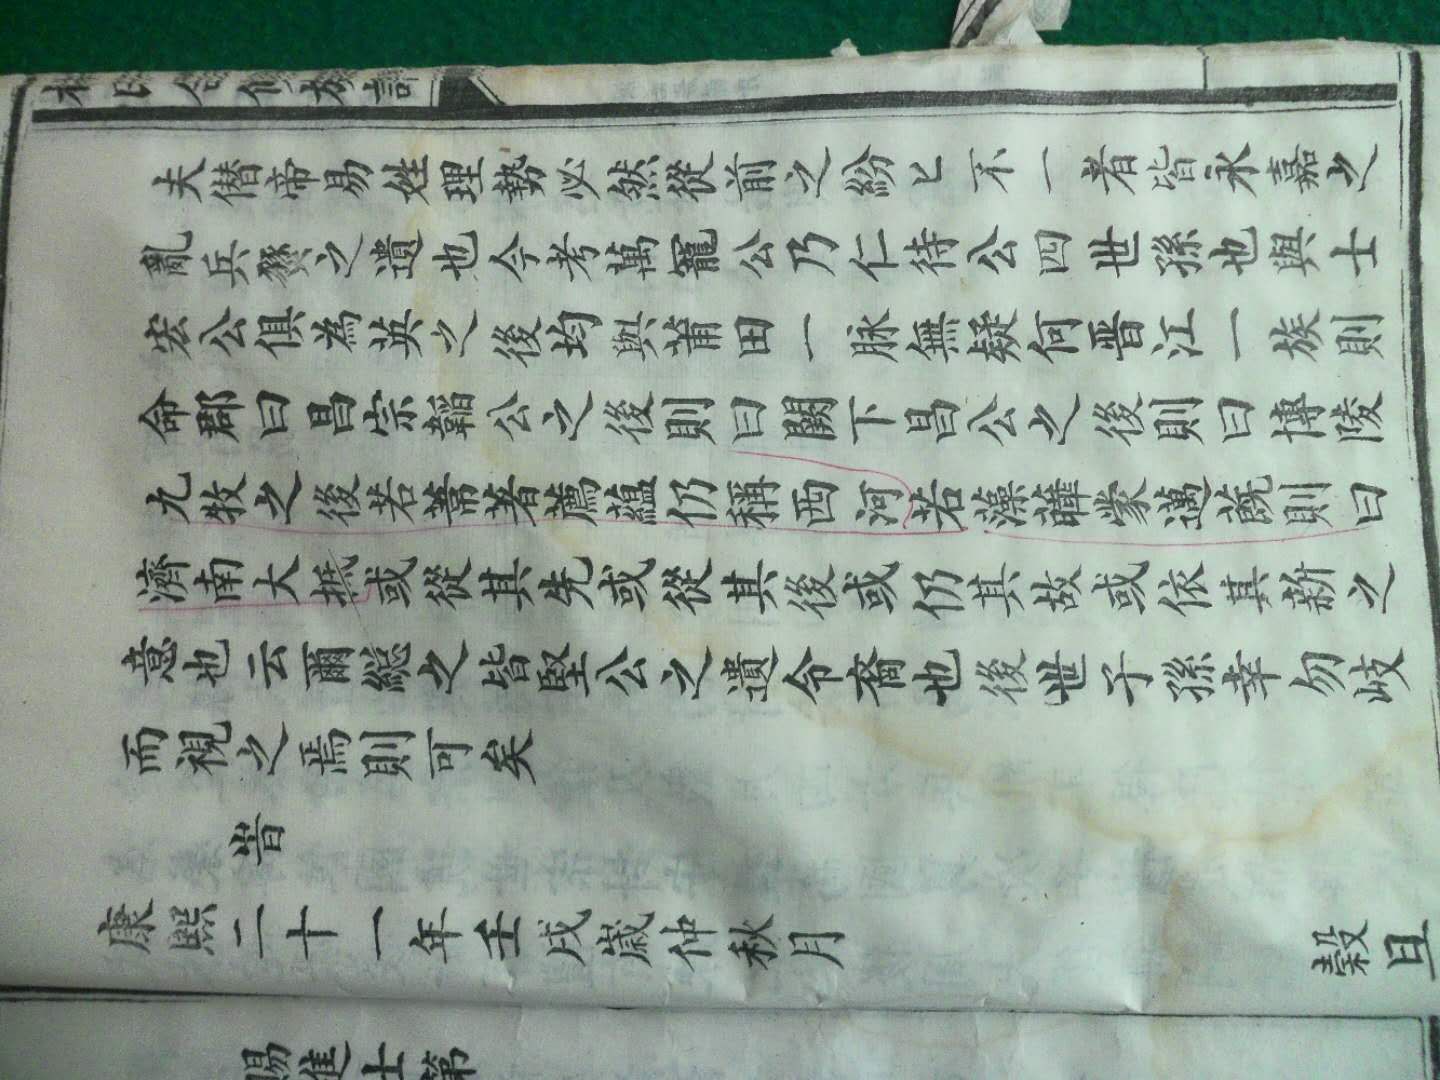 林氏合修族譜
夫僭帝易姓理勢必然從前之紛匕不一者皆永嘉之
亂兵燹之遺也今考萬寵公乃仁待公四世孫也與士
宏公俱為英之後均與莆田一脉無疑何晋江一族則
命郡曰昌宗韜公之後則曰闕下昌公之後則曰博陵
九牧之後若葦著薦蘊仍稱西河若藻曄蒙邁蔇則曰
濟南大抵或從其先或從其後或仍其故或依其新之
意也云爾総之皆堅公之遺令裔也後世子孫幸勿岐
而視之焉則可矣
旹
康熙二十一年壬戌歲仲秋月 穀旦
賜進士第